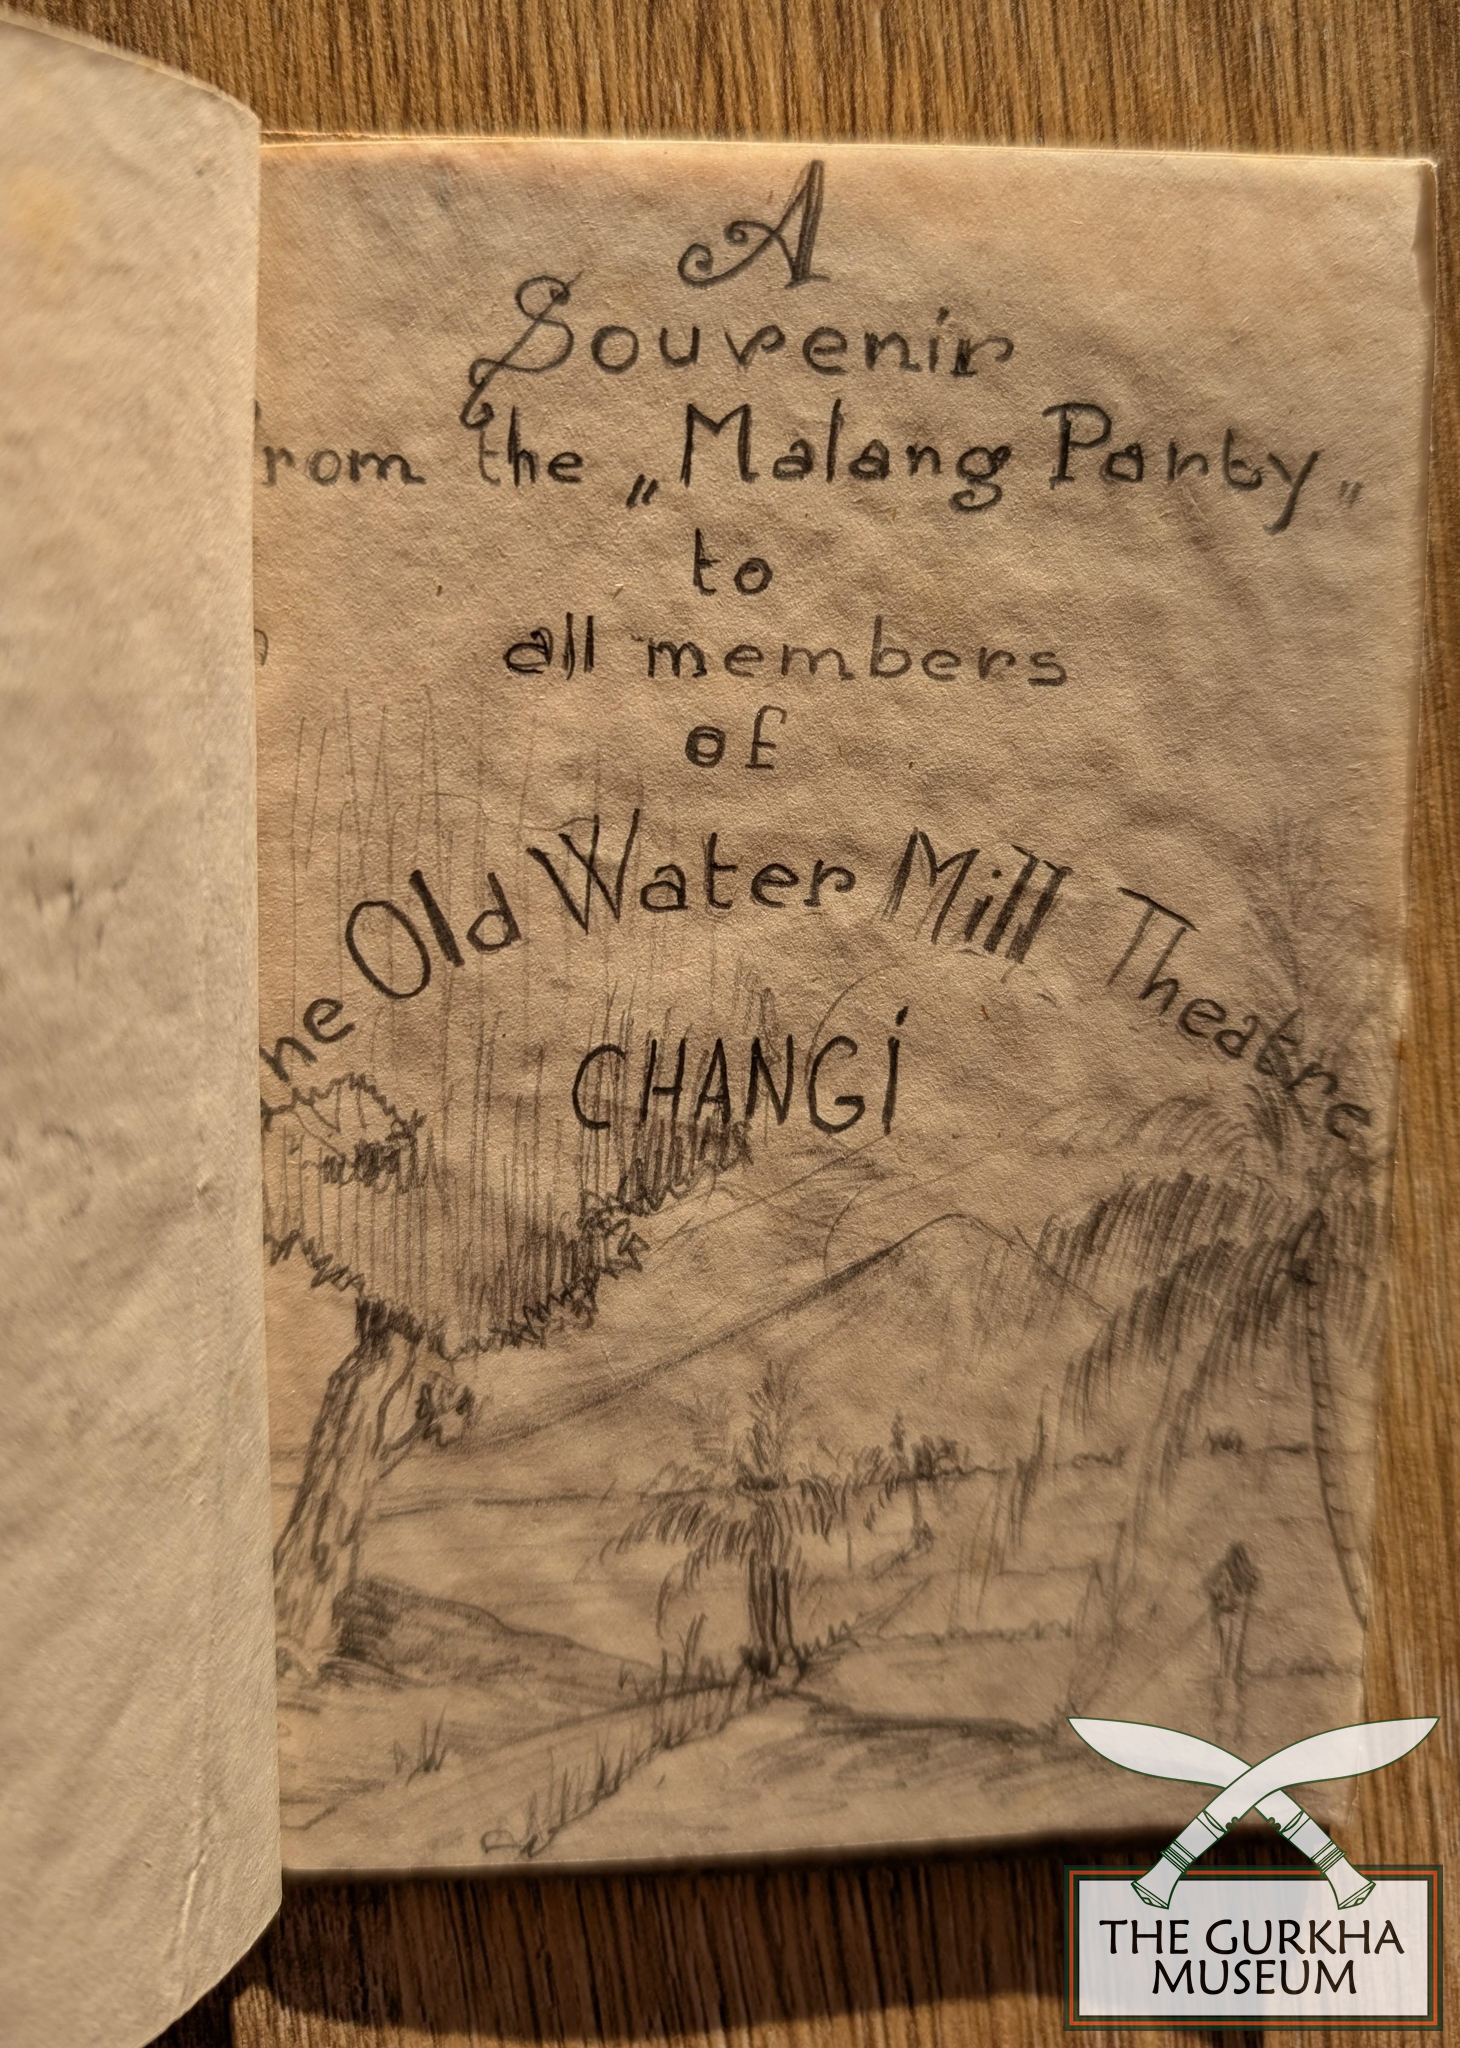 A
Souvenir
from the „Malang Party„
to
all members
of
The Old Water Mill Theatre
CHANGI
THE GURKHA
MUSEUM